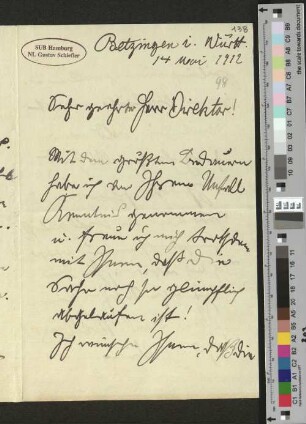 138
SUB Hamburg
NL Gustav Schiefler
Betzingen i. Württ.
14 Mai 1912
98
Sehr geehrter Herr Direktor!
Mit dem größten Bedauern
habe ich von Ihrem Unfall
Kenntniß genommen
u. freue ich mich trotzdem
mit Ihnen, daß die
Sache noch so glimpflich
abgelaufen ist!
Ich wünsche Ihnen, daß die